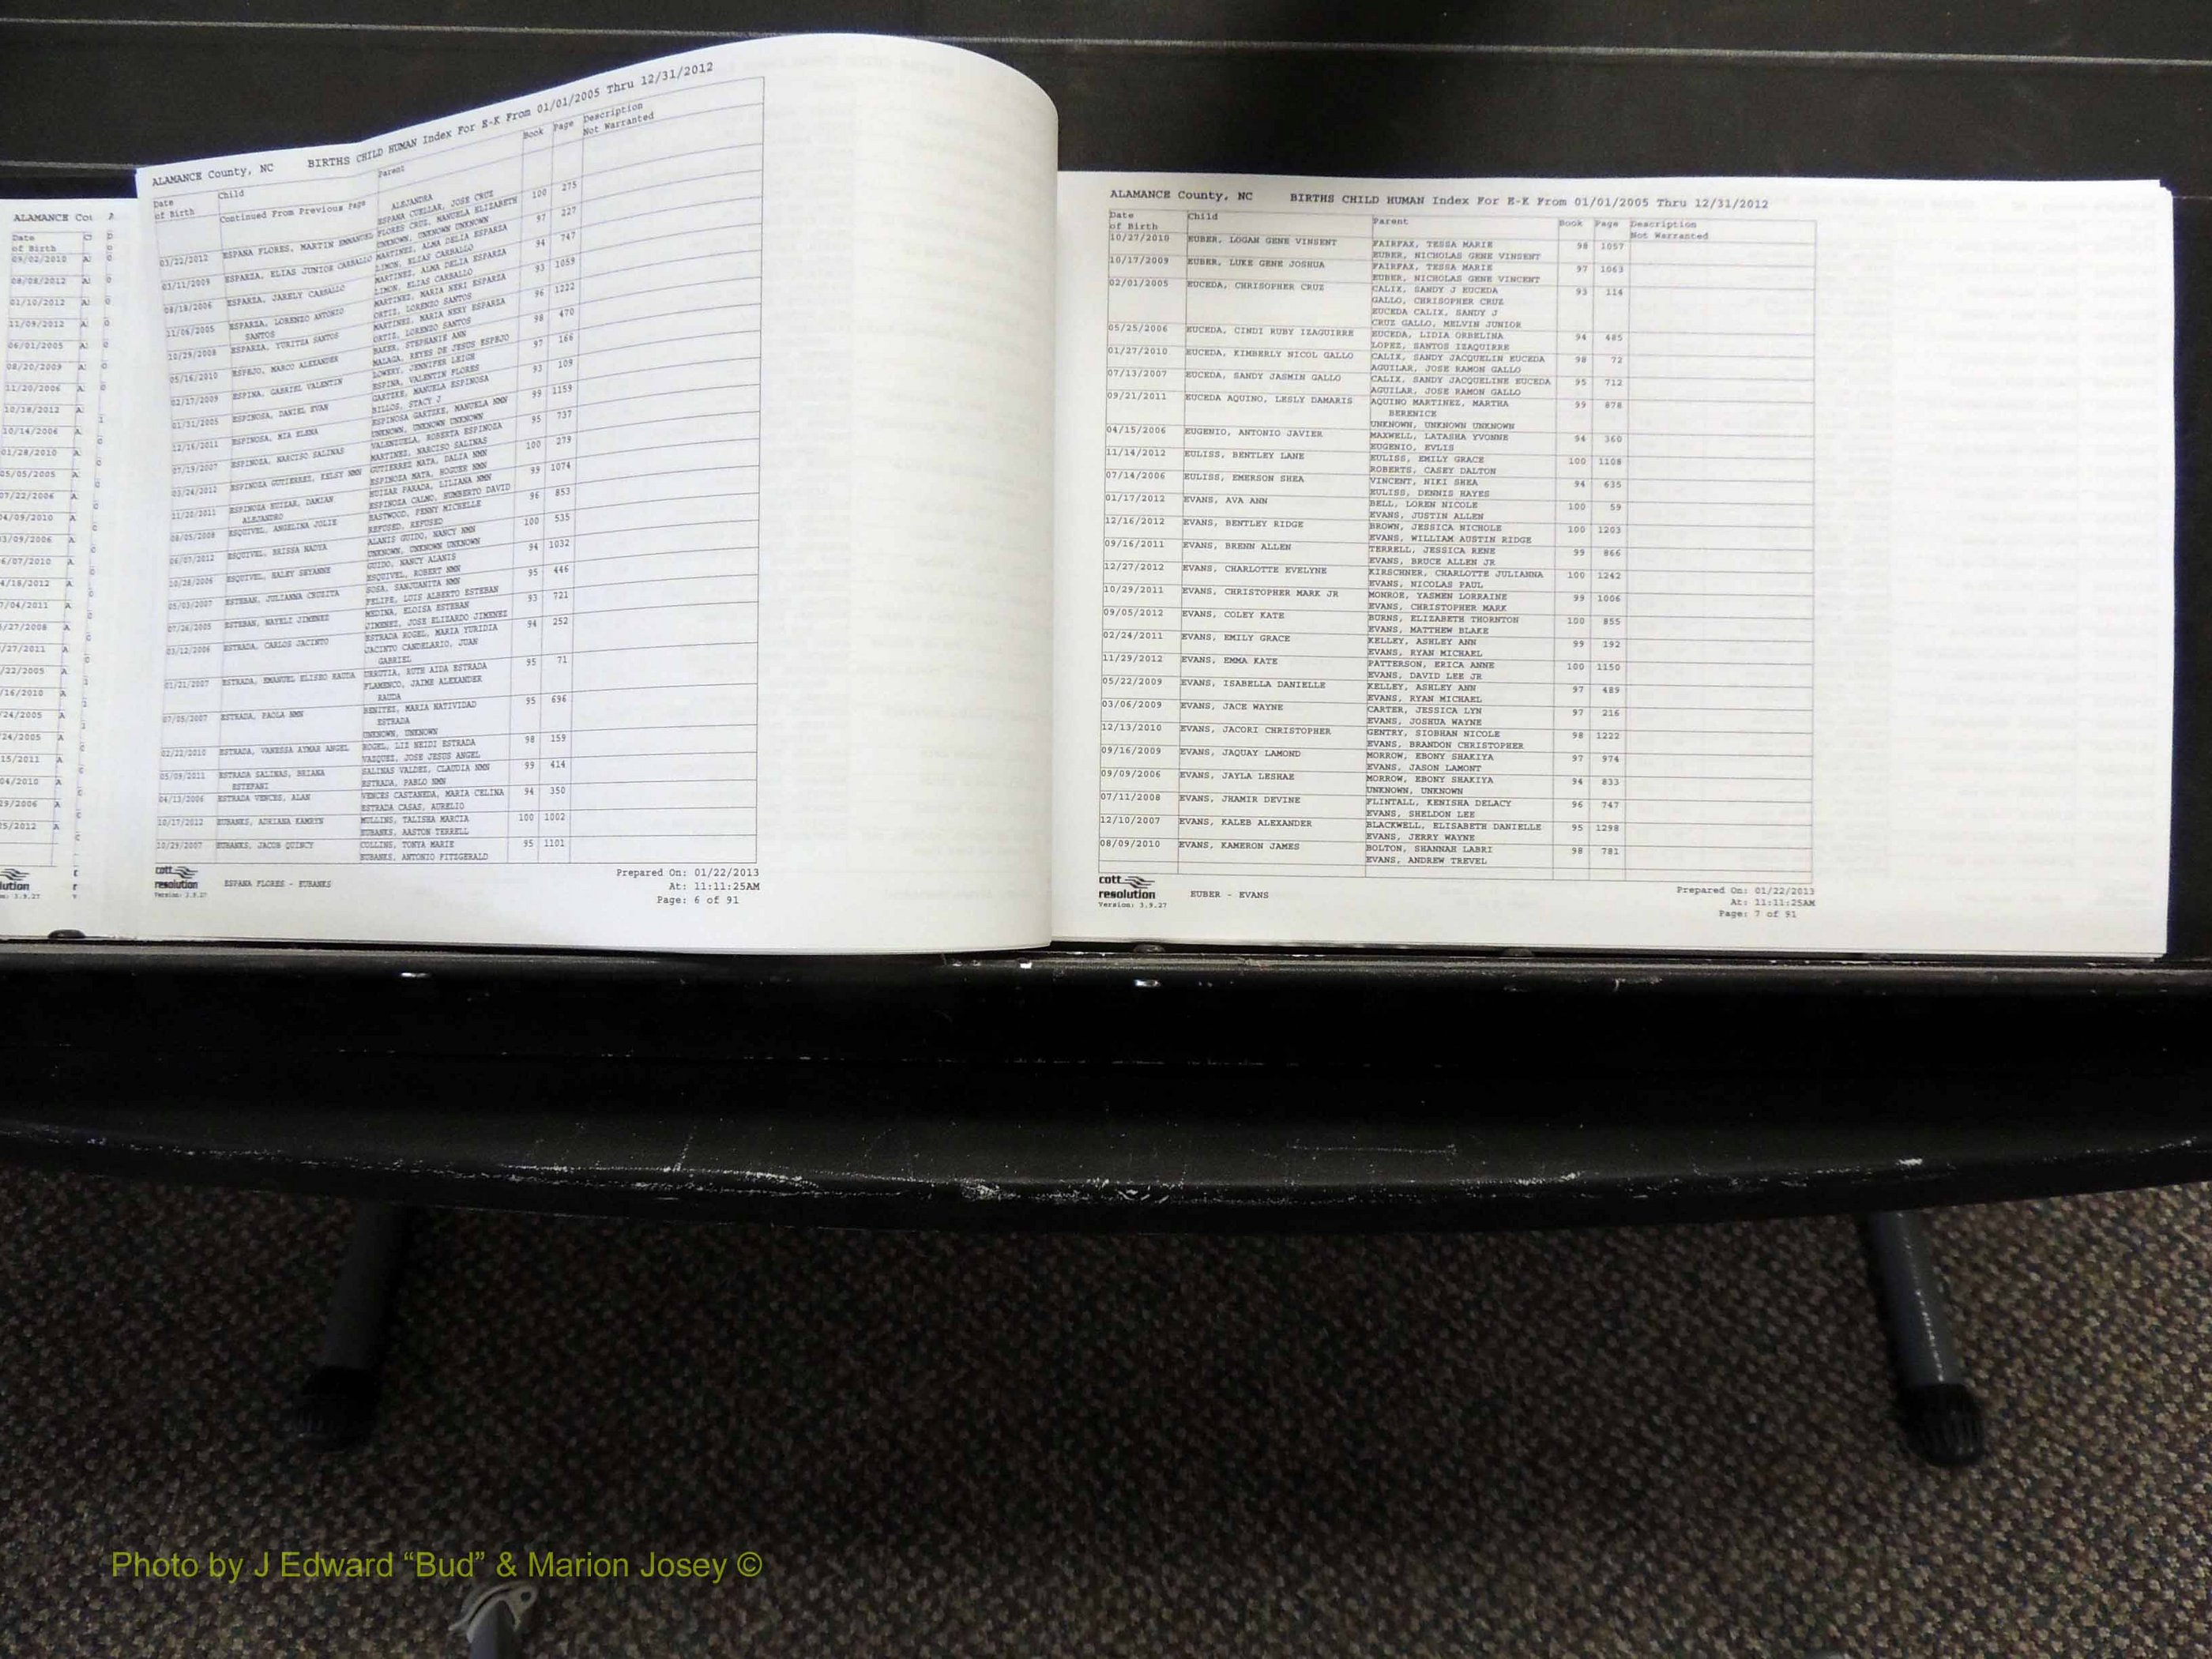 ALAMANCE Cou
Date
of Birth
09/02/2010
08/08/2012
01/10/2012
11/09/2012
06/01/2005
08/20/2009
11/20/2006
10/18/2012
10/14/2006
01/28/2010
05/05/2005
07/22/2006
04/09/2010
ALAMANCE County, NC BIRTHS CHILD HUMAN Index For E-K From 01/01/2005 Thru 12/31/2012
Date of Birth Child Parent Book Page Description Not Warranted
Continued From Previous Page ALEJANDRA
03/22/2012 ESPANA FLORES, MARTIN EMMANUEL ESPANA CUELLAR, JOSE CRUZ 100 275
FLORES CRUZ, MANUELA ELIZABETH
UNKNOWN, UNKNOWN UNKNOWN
03/11/2009 ESPARZA, ELIAS JUNIOR CARBALLO MARTINEZ, ALMA DELIA ESPARZA 97 227
LIMON, ELIAS CARBALLO
08/18/2006 ESPARZA, JARELY CARBALLO MARTINEZ, ALMA DELIA ESPARZA 94 747
LIMON, ELIAS CARBALLO
11/06/2005 ESPARZA, LORENZO ANTONIO SANTOS MARTINEZ, MARIA NERI ESPARZA 93 1059
ORTIZ, LORENZO SANTOS
10/29/2008 ESPARZA, YURITZA SANTOS MARTINEZ, MARIA NERY ESPARZA 96 1222
ORTIZ, LORENZO SANTOS
05/16/2010 ESPEJO, MARCO ALEXANDER BAKER, STEPHANIE ANN 98 470
MALAGA, REYES DE JESUS ESPEJO
02/17/2009 ESPINA, GABRIEL VALENTIN LOWERY, JENNIFER LEIGH 97 166
ESPINA, VALENTIN FLORES
01/31/2005 ESPINOSA, DANIEL EVAN GARTZKE, MANUELA ESPINOSA 93 109
BILLOS, STACY J
12/16/2011 ESPINOSA, MIA ELENA ESPINOSA GARTZKE, MANUELA NMN 99 1159
UNKNOWN, UNKNOWN UNKNOWN
07/19/2007 ESPINOZA, NARCISO SALINAS VALENZUELA, ROBERTA ESPINOZA 95 737
MARTINEZ, NARCISO SALINAS
03/24/2012 ESPINOZA GUTIERREZ, KELSY NMN GUTIERREZ MATA, DALIA NMN 100 279
ESPINOZA MATA, ROGUER NMN
11/20/2011 ESPINOZA HUIZAR, DAMIAN ALEJANDRO HUIZAR PARADA, LILIANA NMN 99 1074
ESPINOZA CALMO, HUMBERTO DAVID
08/05/2008 ESQUIVEL, ANGELINA JOLIE EASTWOOD, PENNY MICHELLE 96 853
REFUSED, REFUSED
06/07/2012 ESQUIVEL, BRISSA NADYA ALANIS GUIDO, NANCY NMN 100 535
UNKNOWN, UNKNOWN UNKNOWN
10/28/2006 ESQUIVEL, HALEY SHYANNE GUIDO, NANCY ALANIS 94 1032
ESQUIVEL, ROBERT NMN
05/03/2007 ESTEBAN, JULIANNA CRUZITA SOSA, SANJUANITA NMN 95 446
FELIPE, LUIS ALBERTO ESTEBAN
07/26/2005 ESTEBAN, NAYELI JIMENEZ MEDINA, ELOISA ESTEBAN 93 721
JIMENEZ, JOSE ELIZARDO JIMENEZ
03/12/2006 ESTRADA, CARLOS JACINTO ESTRADA ROGEL, MARIA YURIDIA 94 252
JACINTO CANDELARIO, JUAN
GABRIEL
01/21/2007 ESTRADA, EMANUEL ELISEO RAUDA URRUTIA, RUTH AIDA ESTRADA 95 71
FLAMENCO, JAIME ALEXANDER
RAUDA
07/05/2007 ESTRADA, PAOLA NMN BENITEZ, MARIA NATIVIDAD 95 696
ESTRADA
UNKNOWN, UNKNOWN
02/22/2010 ESTRADA, VANESSA AYMAR ANGEL ROGEL, LIZ NEIDI ESTRADA 98 159
VAZQUEZ, JOSE JESUS ANGEL
05/09/2011 ESTRADA SALINAS, BRIANA ESTEFANI SALINAS VALDEZ, CLAUDIA NMN 99 414
ESTRADA, PABLO NMN
04/13/2006 ESTRADA VENCES, ALAN VENCES CASTANEDA, MARIA CELINA 94 350
ESTRADA CASAS, AURELIO
10/17/2012 EUBANKS, ADRIANA KAMRYN MULLINS, TALISHA MARCIA 100 1002
EUBANKS, AASTON TERRELL
10/29/2007 EUBANKS, JACOB QUINCY COLLINS, TONYA MARIE 95 1101
EUBANKS, ANTONIO FITZGERALD
cott resolution Version: 3.9.27
ESPANA FLORES - EUBANKS
Prepared On: 01/22/2013
At: 11:11:25AM
Page: 6 of 91
ALAMANCE County, NC BIRTHS CHILD HUMAN Index For E-K From 01/01/2005 Thru 12/31/2012
Date of Birth Child Parent Book Page Description Not Warranted
10/27/2010 EUBER, LOGAN GENE VINSENT FAIRFAX, TESSA MARIE 98 1057
EUBER, NICHOLAS GENE VINSENT
10/17/2009 EUBER, LUKE GENE JOSHUA FAIRFAX, TESSA MARIE 97 1063
EUBER, NICHOLAS GENE VINCENT
02/01/2005 EUCEDA, CHRISOPHER CRUZ CALIX, SANDY J EUCEDA 93 114
GALLO, CHRISOPHER CRUZ
EUCEDA CALIX, SANDY J
CRUZ GALLO, MELVIN JUNIOR
05/25/2006 EUCEDA, CINDI RUBY IZAGUIRRE EUCEDA, LIDIA ORBELINA 94 485
LOPEZ, SANTOS IZAQUIRRE
01/27/2010 EUCEDA, KIMBERLY NICOL GALLO CALIX, SANDY JACQUELIN EUCEDA 98 72
AGUILAR, JOSE RAMON GALLO
07/13/2007 EUCEDA, SANDY JASMIN GALLO CALIX, SANDY JACQUELINE EUCEDA 95 712
AGUILAR, JOSE RAMON GALLO
09/21/2011 EUCEDA AQUINO, LESLY DAMARIS AQUINO MARTINEZ, MARTHA 99 878
BERENICE
UNKNOWN, UNKNOWN UNKNOWN
04/15/2006 EUGENIO, ANTONIO JAVIER MAXWELL, LATASHA YVONNE 94 360
EUGENIO, EVLIS
11/14/2012 EULISS, BENTLEY LANE EULISS, EMILY GRACE 100 1108
ROBERTS, CASEY DALTON
07/14/2006 EULISS, EMERSON SHEA VINCENT, NIKI SHEA 94 635
EULISS, DENNIS HAYES
01/17/2012 EVANS, AVA ANN BELL, LOREN NICOLE 100 59
EVANS, JUSTIN ALLEN
12/16/2012 EVANS, BENTLEY RIDGE BROWN, JESSICA NICHOLE 100 1203
EVANS, WILLIAM AUSTIN RIDGE
09/16/2011 EVANS, BRENN ALLEN TERRELL, JESSICA RENE 99 866
EVANS, BRUCE ALLEN JR
12/27/2012 EVANS, CHARLOTTE EVELYNE KIRSCHNER, CHARLOTTE JULIANNA 100 1242
EVANS, NICOLAS PAUL
10/29/2011 EVANS, CHRISTOPHER MARK JR MONROE, YASMEN LORRAINE 99 1006
EVANS, CHRISTOPHER MARK
09/05/2012 EVANS, COLEY KATE BURNS, ELIZABETH THORNTON 100 855
EVANS, MATTHEW BLAKE
02/24/2011 EVANS, EMILY GRACE KELLEY, ASHLEY ANN 99 192
EVANS, RYAN MICHAEL
11/29/2012 EVANS, EMMA KATE PATTERSON, ERICA ANNE 100 1150
EVANS, DAVID LEE JR
05/22/2009 EVANS, ISABELLA DANIELLE KELLEY, ASHLEY ANN 97 489
EVANS, RYAN MICHAEL
03/06/2009 EVANS, JACE WAYNE CARTER, JESSICA LYN 97 216
EVANS, JOSHUA WAYNE
12/13/2010 EVANS, JACORI CHRISTOPHER GENTRY, SIOBHAN NICOLE 98 1222
EVANS, BRANDON CHRISTOPHER
09/16/2009 EVANS, JAQUAY LAMOND MORROW, EBONY SHAKIYA 97 974
EVANS, JASON LAMONT
09/09/2006 EVANS, JAYLA LESHAE MORROW, EBONY SHAKIYA 94 833
UNKNOWN, UNKNOWN
07/11/2008 EVANS, JHAMIR DEVINE FLINTALL, KENISHA DELACY 96 747
EVANS, SHELDON LEE
12/10/2007 EVANS, KALEB ALEXANDER BLACKWELL, ELISABETH DANIELLE 95 1298
EVANS, JERRY WAYNE
08/09/2010 EVANS, KAMERON JAMES BOLTON, SHANNAH LABRI 98 781
EVANS, ANDREW TREVEL
cott resolution Version: 3.9.27
EUBER - EVANS
Prepared On: 01/22/2013
At: 11:11:25AM
Page: 7 of 91
Photo by J Edward “Bud” & Marion Josey ©